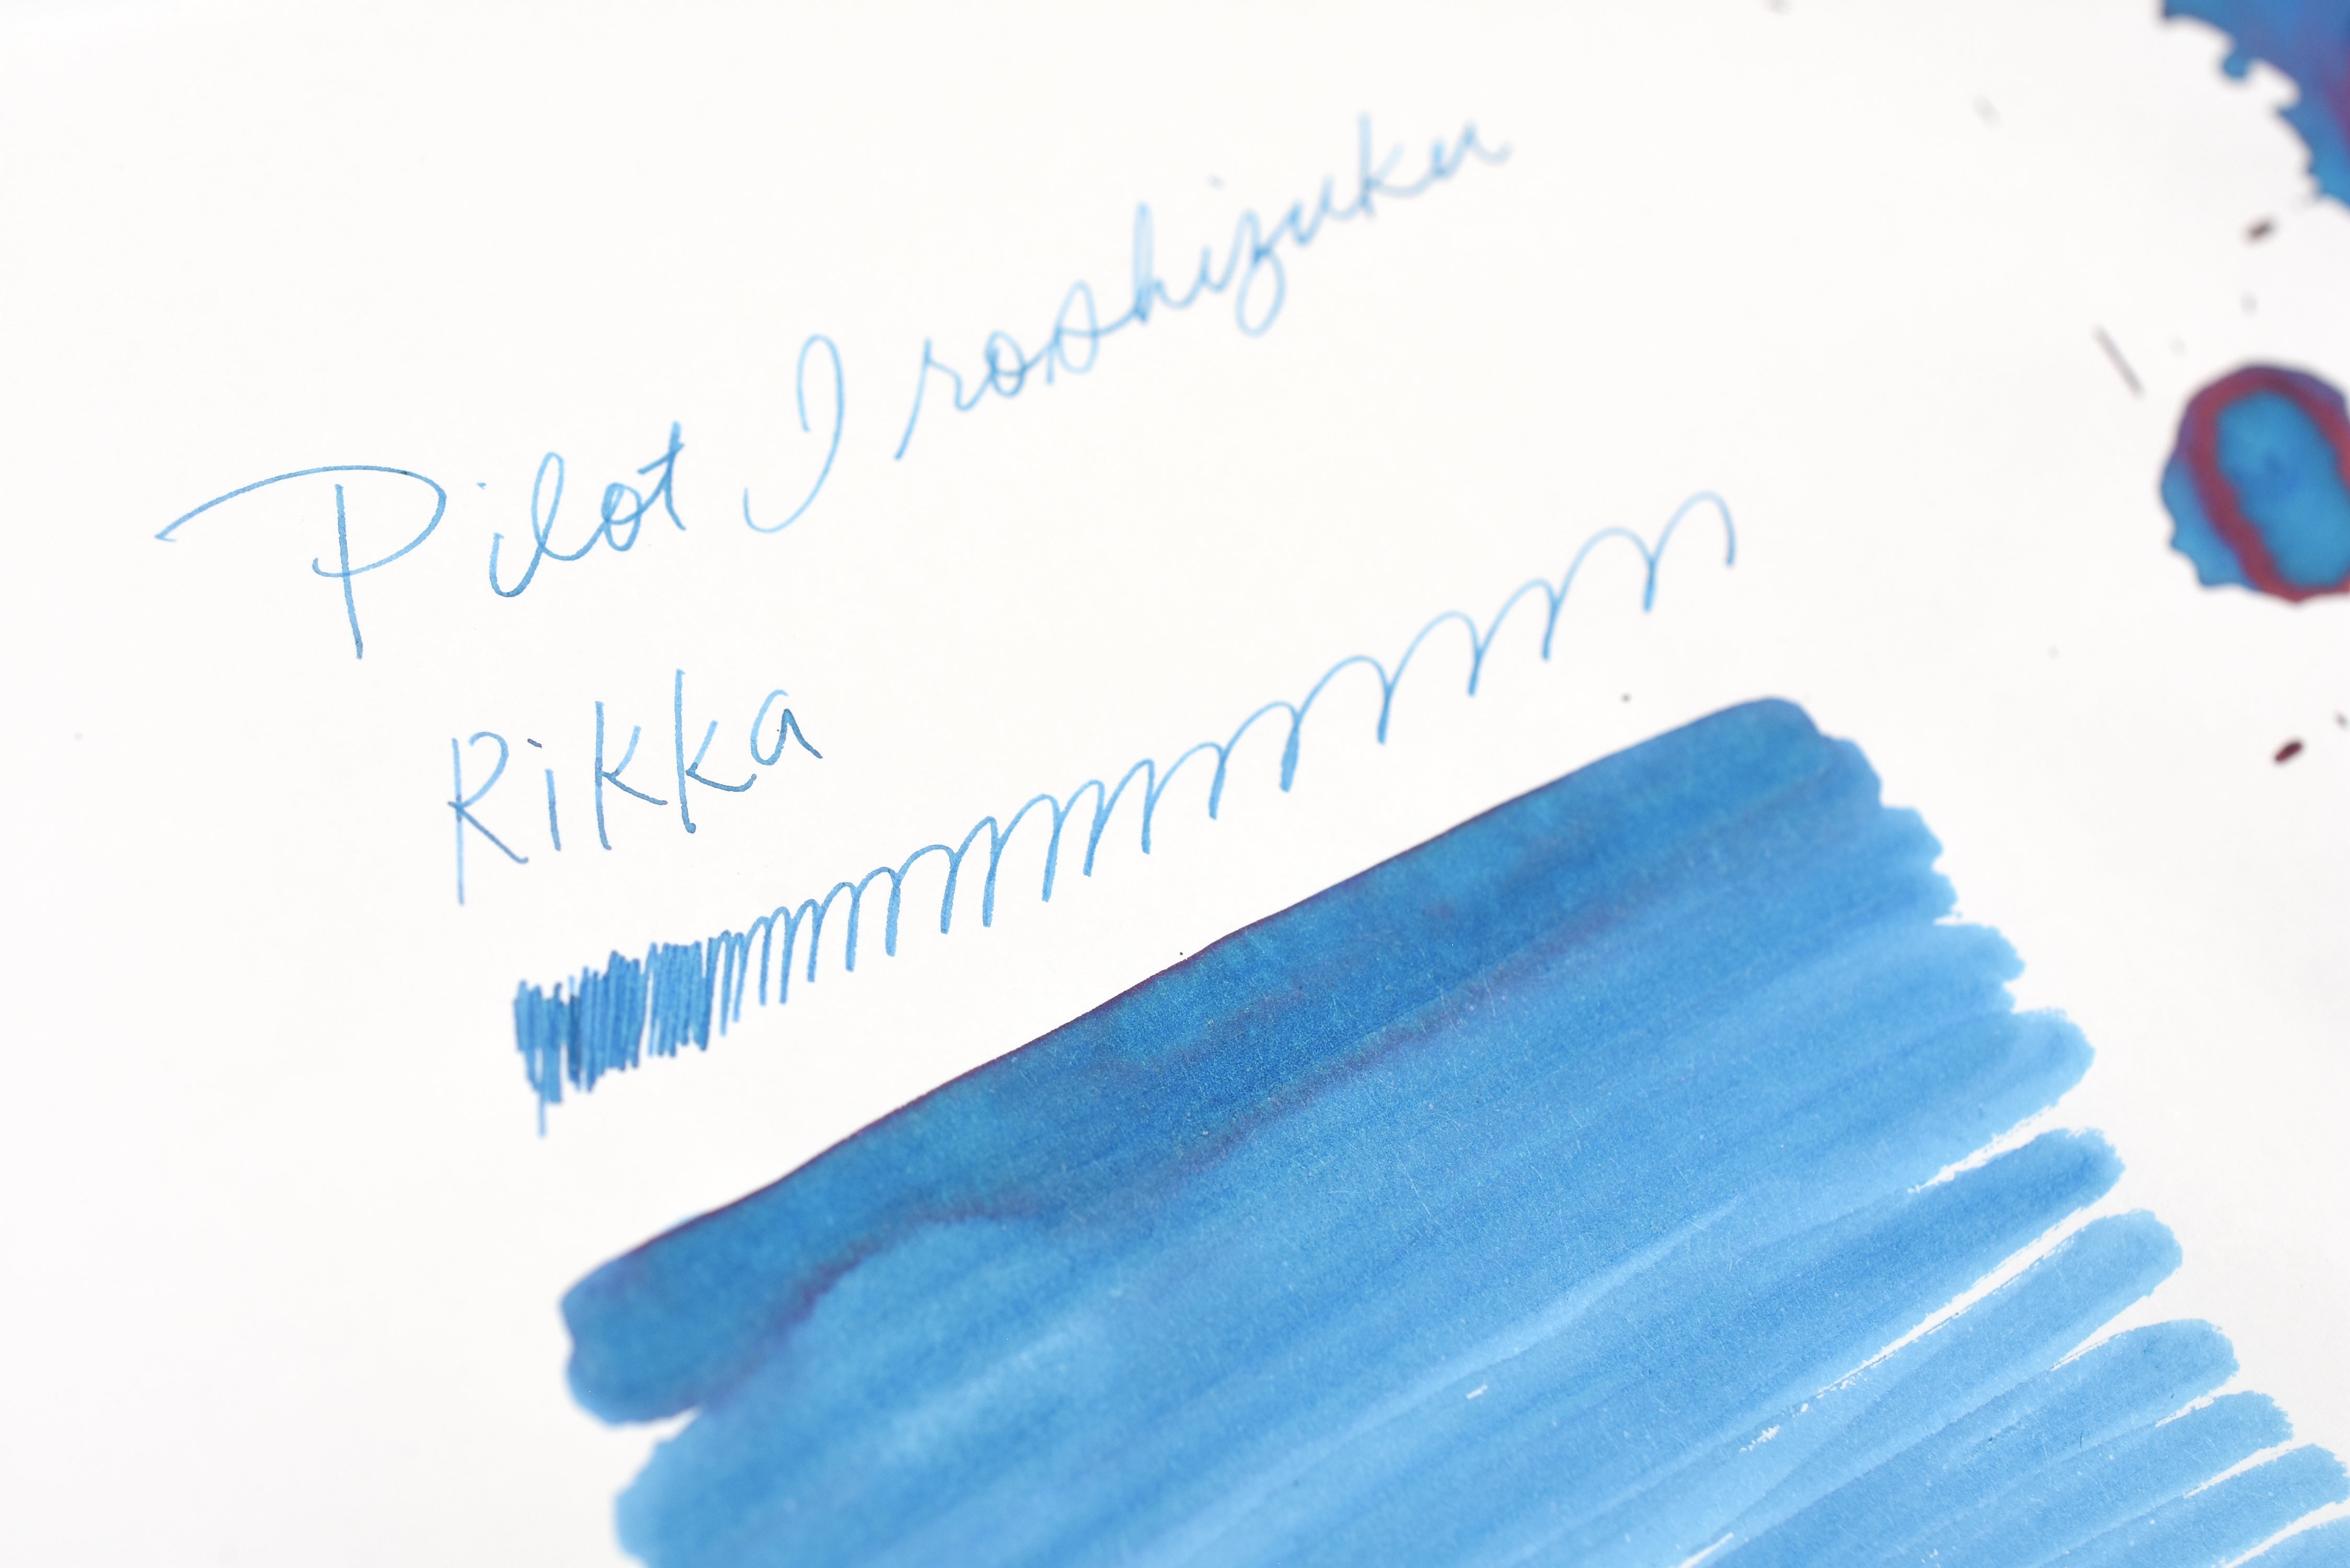 Pilot Iroshizuku
Rikka